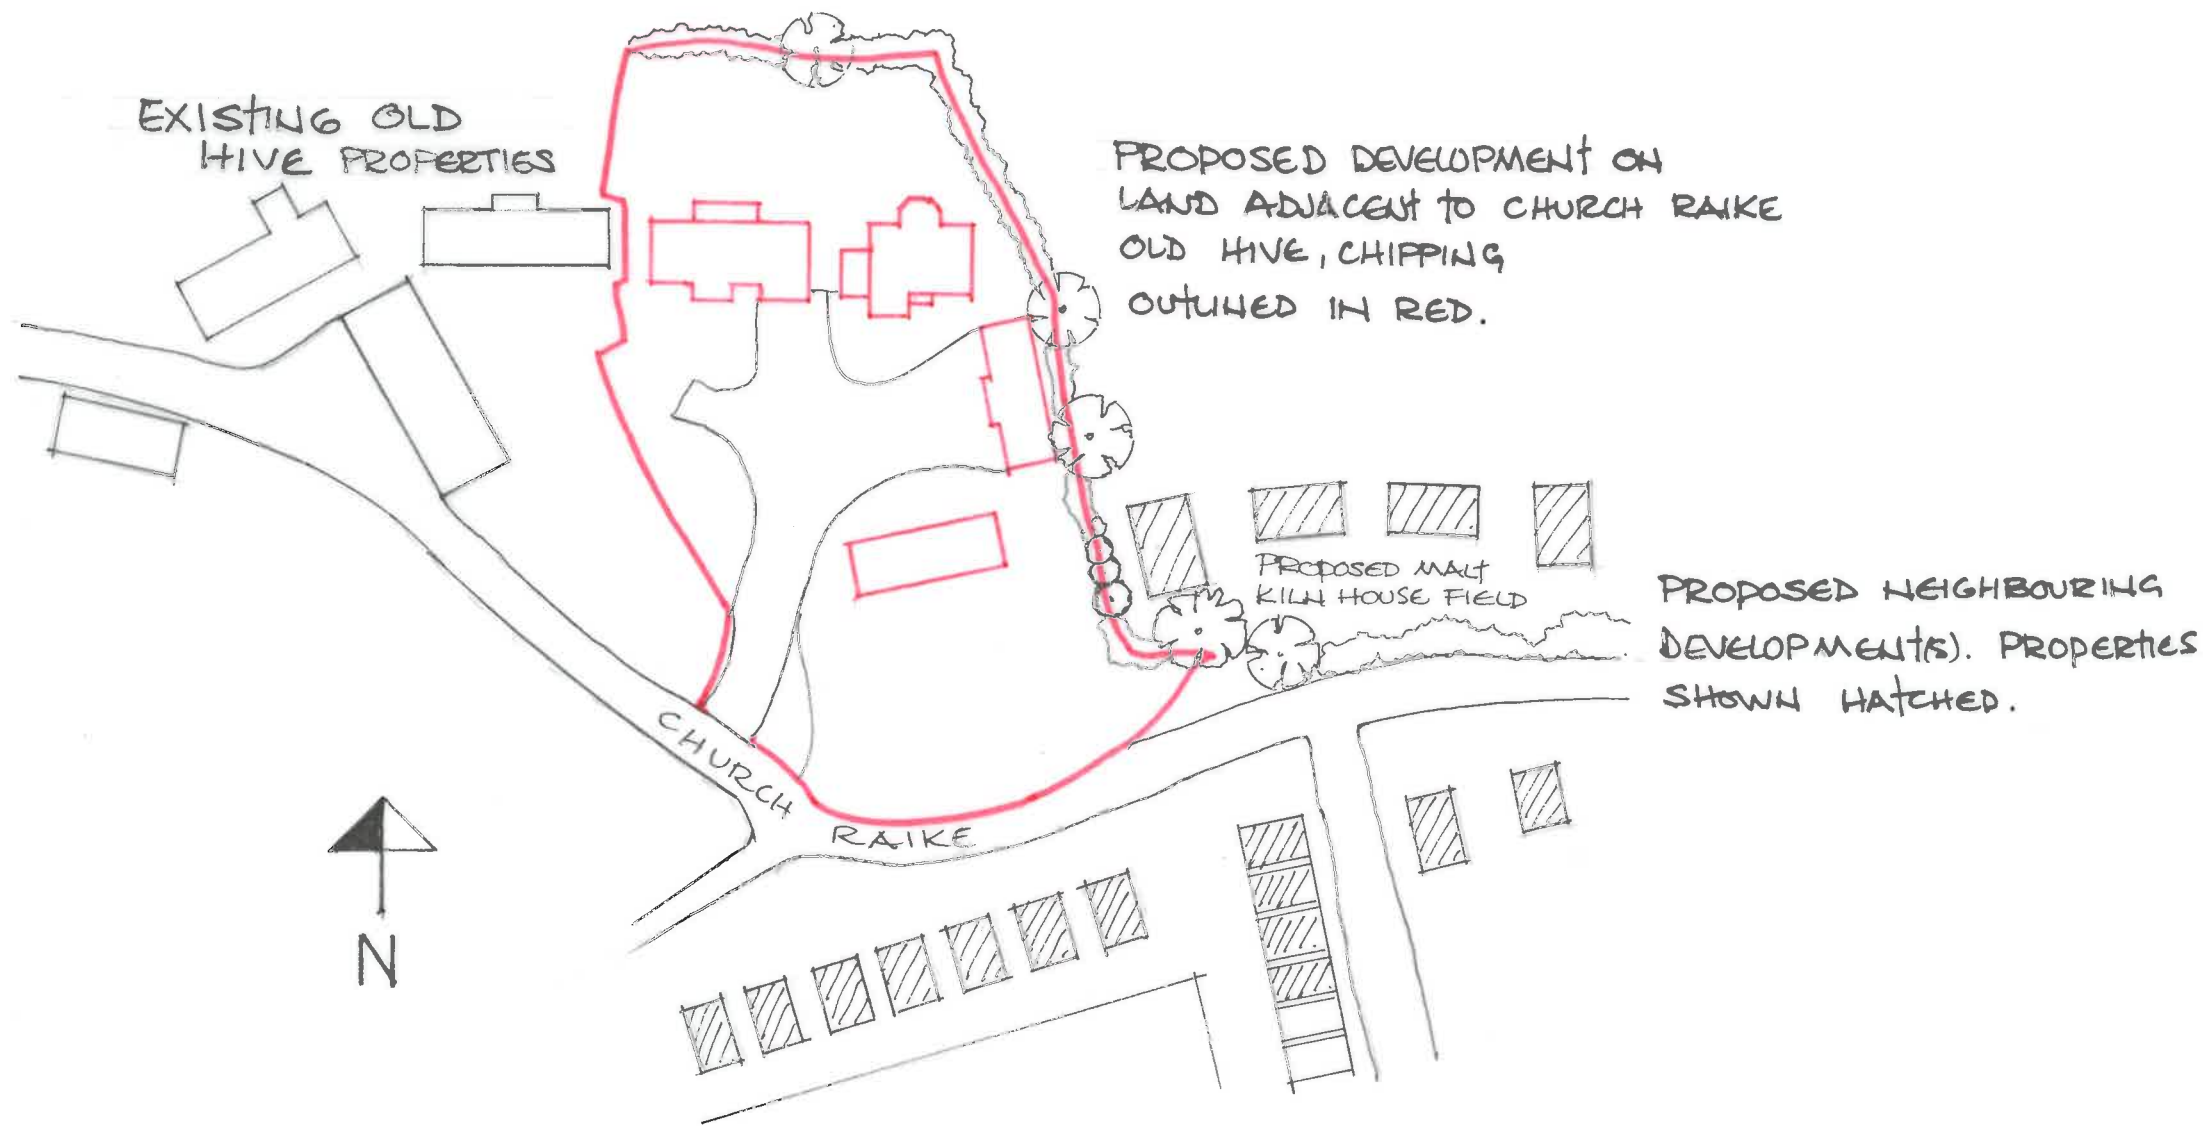 EXISTING OLD
HIVE PROPERTIES
PROPOSED DEVELOPMENT ON
LAND ADJACENT TO CHURCH RAIKE
OLD HIVE, CHIPPING
OUTLINED IN RED.
PROPOSED MALT
KILN HOUSE FIELD
PROPOSED NEIGHBOURING
DEVELOPMENT(S). PROPERTIES
SHOWN HATCHED.
CHURCH
RAIKE
N